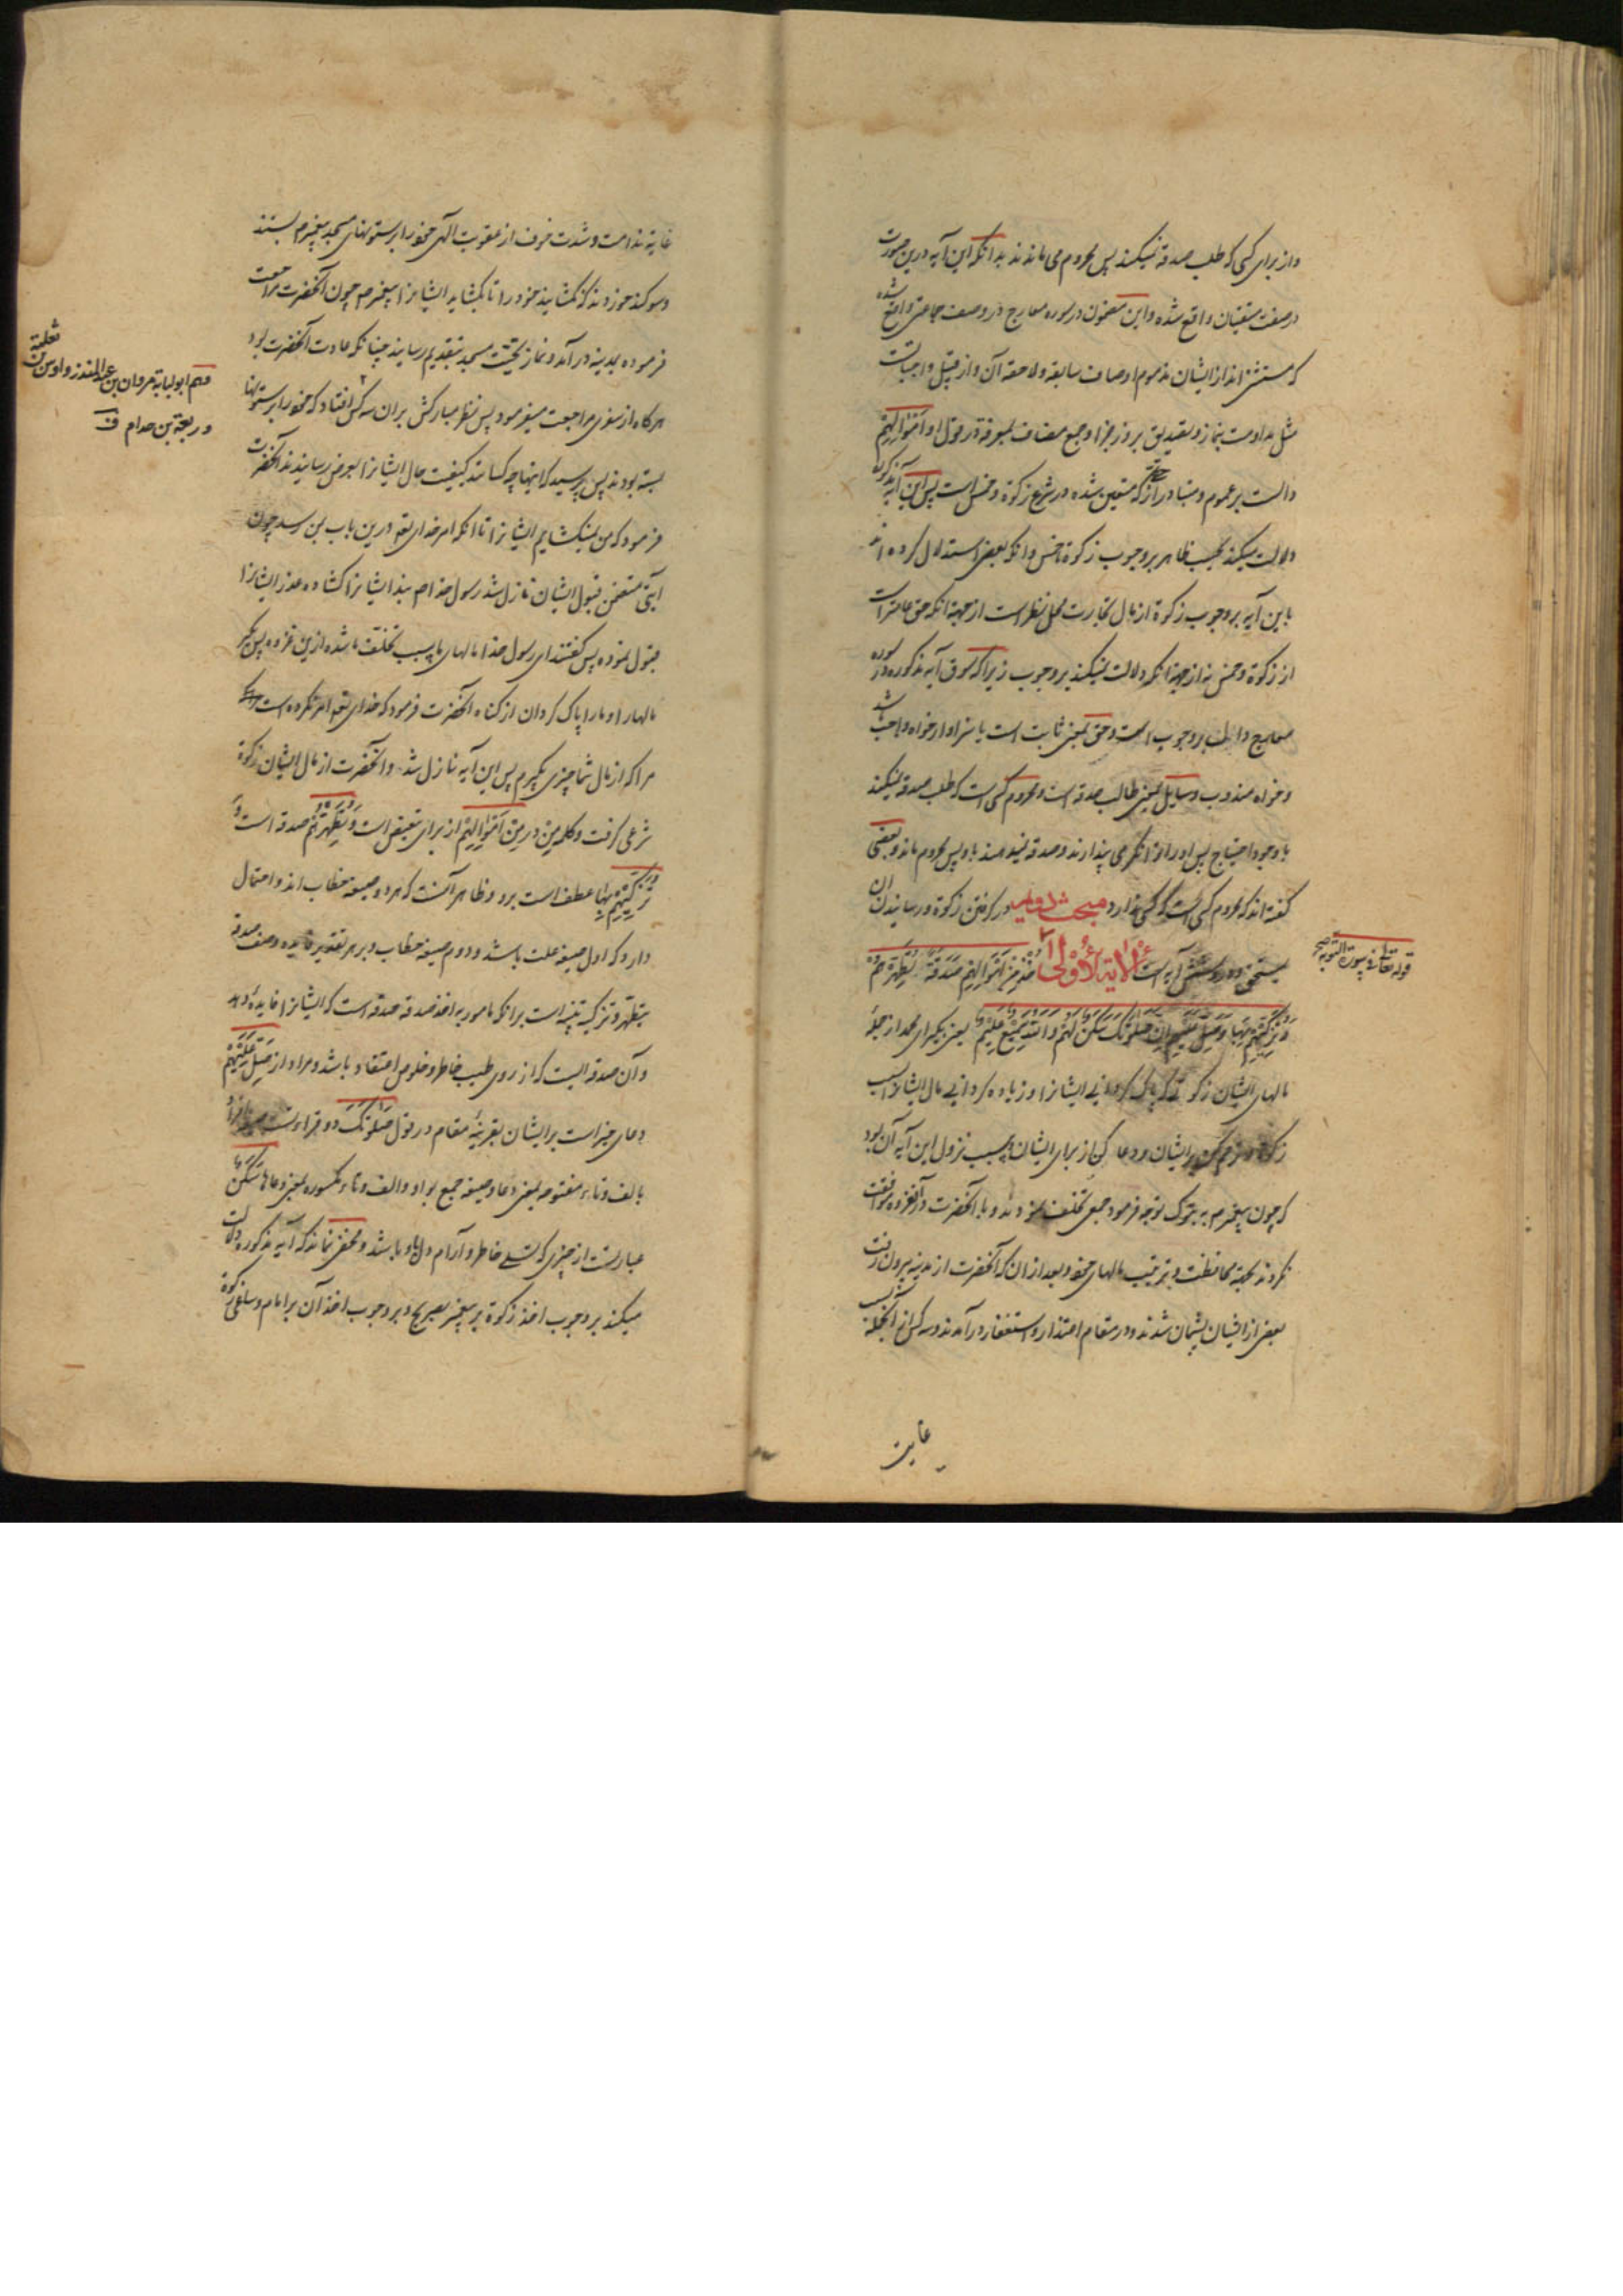 و از برای کسی که طلب صدقه نمیکند پس محروم می ماند بدانکه این آیه درین صورت
در صفت متقیان واقع شده و این مضمون در سوره معارج در وصف جماعتی واقع شده
که مستثنی اند از ایشان مذموم اوصاف سابقه و لاحقه آن و از قبیل واجباتست
مثل مداومت بنماز و تصدیق بروز جزا و جمع مضاف بمعرفة در قول او اَمْوَالِهِمْ
دالست بر عموم و متبادر از حق که متعین شده در شرع زکوة و خمس است پس این آیه مذکوره
دلالت میکند بحسب ظاهر بر وجوب زکوة و خمس و آنکه بعضی استدلال کرده اند
باین آیه بر وجوب زکوة از مال تجارت محل نظر است از جهة آنکه حق عامتر است
از زکوة و خمس نه از جهة آنکه دلالت نمیکند بر وجوب زیرا که سوق آیه مذکوره در سوره
معارج دال بر وجوب است و حق بمعنی ثابت است یا سزاوار خواه واجب باشد
و خواه مندوب و سایل بمعنی طالب صدقه است و محروم کسی است که طلب صدقه نمیکند
با وجود احتیاج پس او را توانگر می پندارند و صدقه نمیدهند باو پس محروم ماند و بعضی
گفته اند که محروم کسی است که کسی ندارد مبحث دویم در گرفتن زکوة و رسانیدن آن
بمستحق و درو شش آیه است الآیة الأولی خُذْ مِنْ اَمْوَالِهِمْ صَدَقَةً تُطَهِّرُهُمْ
وَتُزَكِّيهِمْ بِهَا وَصَلِّ عَلَيْهِمْ إِنَّ صَلَوتَكَ سَكَنٌ لَهُمْ وَاللَّهُ سَمِيعٌ عَلِيمٌ یعنی بگیر ای محمد از جمله
مالهای ایشان زکوتی که پاک گردانی ایشانرا و زیاده گردانی مال ایشانرا بسبب
زکوة و ترحم کن بر ایشان و دعا کن از برای ایشان و سبب نزول این آیه آن بود
که چون پیغمبر م به تبوک توجه فرمود جمعی تخلف نمودند و با آنحضرت در آن غزوه موافقت
نکردند بجهة محافظت و ترتیب مالهای خود و بعد از ان که آنحضرت از مدینه بیرون رفت
بعضی از ایشان پشیمان شدند و در مقام اعتذار و استغفار در آمدند و سه کس از آنجمله بسبب
غایت
قوله تعالی فی سورة التوبه
غایة ندامت و شدت خوف از عقوبت الهی خود را بر ستونهای مسجد پیغمبر م بستند
و سوگند خوردند که نگشایند خود را تا بگشاید ایشانرا پیغمبر م چون آنحضرت مراجعت
فرموده بمدینه در آمد و نماز تحیّت مسجد بتقدیم رسانید چنانکه عادت آنحضرت بود
هر گاه از سفری مراجعت میفرمود پس نظر مبارکش بران سه کس افتاد که خود را بر ستونها
بسته بودند پس پرسید که اینها چه کسانند کیفیت حال ایشانرا بعرض رسانیدند آنحضرت
فرمود که من نمیگشایم ایشانرا تا آنکه امر خدای تع درین باب بمن رسد چون
آیتی متضمن قبول ایشان نازل شد رسول خدا م بند ایشانرا گشاده عذر ایشانرا
قبول نموده پس گفتند ای رسول خدا مالهای ما بسبب تخلف ما شده ازین غزوه پس بگیر
مالها را و ما را پاک گردان از گناه آنحضرت فرمود که خدای تع امر نکرده است
مرا که از مال شما چیزی بگیرم پس این آیه نازل شد و آنحضرت از مال ایشان زکوة
شرعی گرفت و کلمه من در مِنْ اَمْوَالِهِمْ از برای تبعیض است و تُطَهِّرُهُمْ صفت صدقه است و
تُزَكِّيهِمْ بِهَا عطف است برو و ظاهر آنست که هر دو صیغه خطاب اند و احتمال
دارد که اول صیغه غیبت باشد و دوم صیغه خطاب و بر هر تقدیر فایده وصف صدقه
بتطهیر و تزکیه تنبیه است بر آنکه مامور به اخذ صدقه صدقه است که ایشانرا فایده دهد
و آن صدقه ایست که از روی طیب خاطر و خلوص اعتقاد باشد و مراد از صَلِّ عَلَيْهِمْ
دعای خیر است بر ایشان بقرینه مقام و در قول صَلَوتَكَ دو قراءتست
بالف و تاء مفتوحه بمعنی دعا و صیغه جمع بواو و الف و تاء مکسوره بمعنی دعاها سَكَنٌ
عبارتست از چیزی که تسلی خاطر و آرام دل باو باشد و مخفی نماند که آیه مذکوره دلالت
میکند بر وجوب اخذ زکوة بر پیغمبر بصریح و بر وجوب اخذ آن بر امام و ساعی زکوة
و هم ابو لبابه مروان بن عبد المنذر و اوس بن ثعلبة
و ربعة بن حدام ف